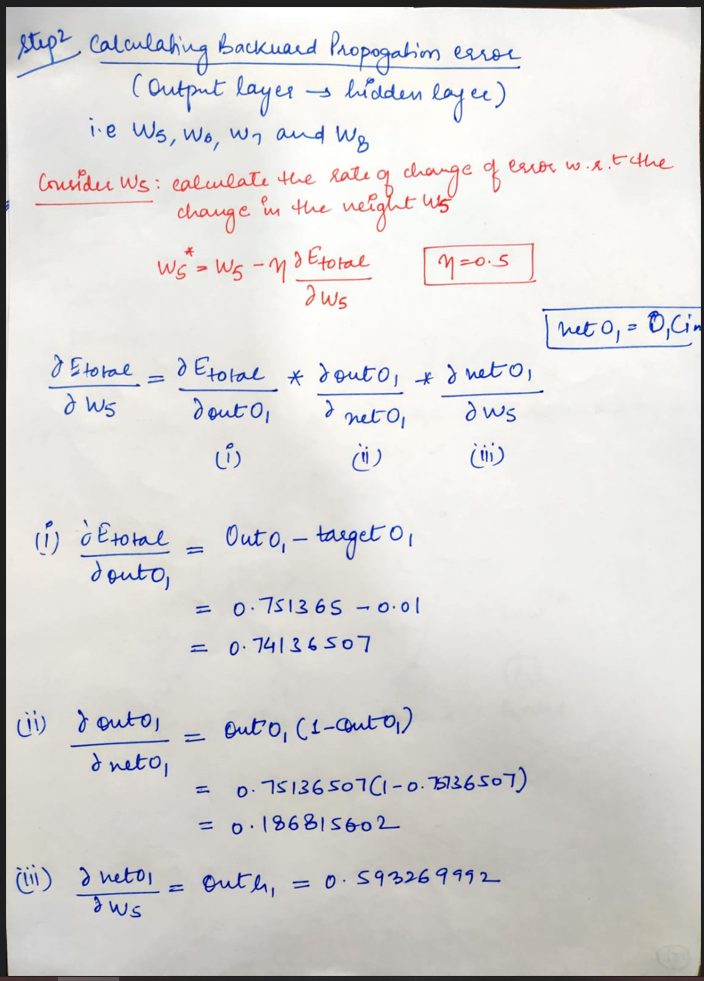 Step2 Calculating Backward Propogation error
(Output layer → hidden layer)
i.e W5, W6, W7 and W8
Consider W5: calculate the rate of change of error w.r.t the
change in the weight W5
W5* = W5 - η ∂Etotal/∂W5 η=0.5
net O1 = O1(in
∂Etotal/∂W5 = ∂Etotal/∂out O1 * ∂out O1/∂net O1 * ∂net O1/∂W5
(i) (ii) (iii)
(i) ∂Etotal/∂out O1 = Out O1 - target O1
= 0.751365 - 0.01
= 0.74136507
(ii) ∂out O1/∂net O1 = Out O1 (1 - Out O1)
= 0.75136507(1-0.75136507)
= 0.186815602
(iii) ∂net O1/∂W5 = Out h1 = 0.593269992